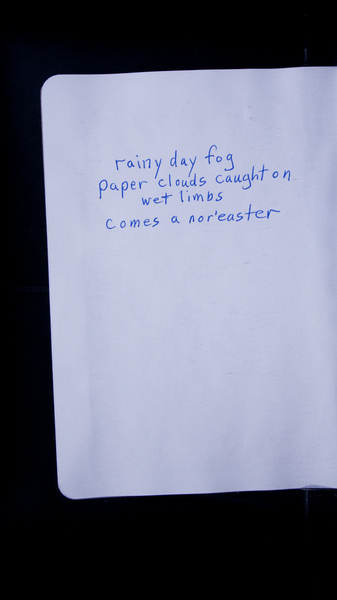 rainy day fog
paper clouds caught on
wet limbs
comes a nor'easter